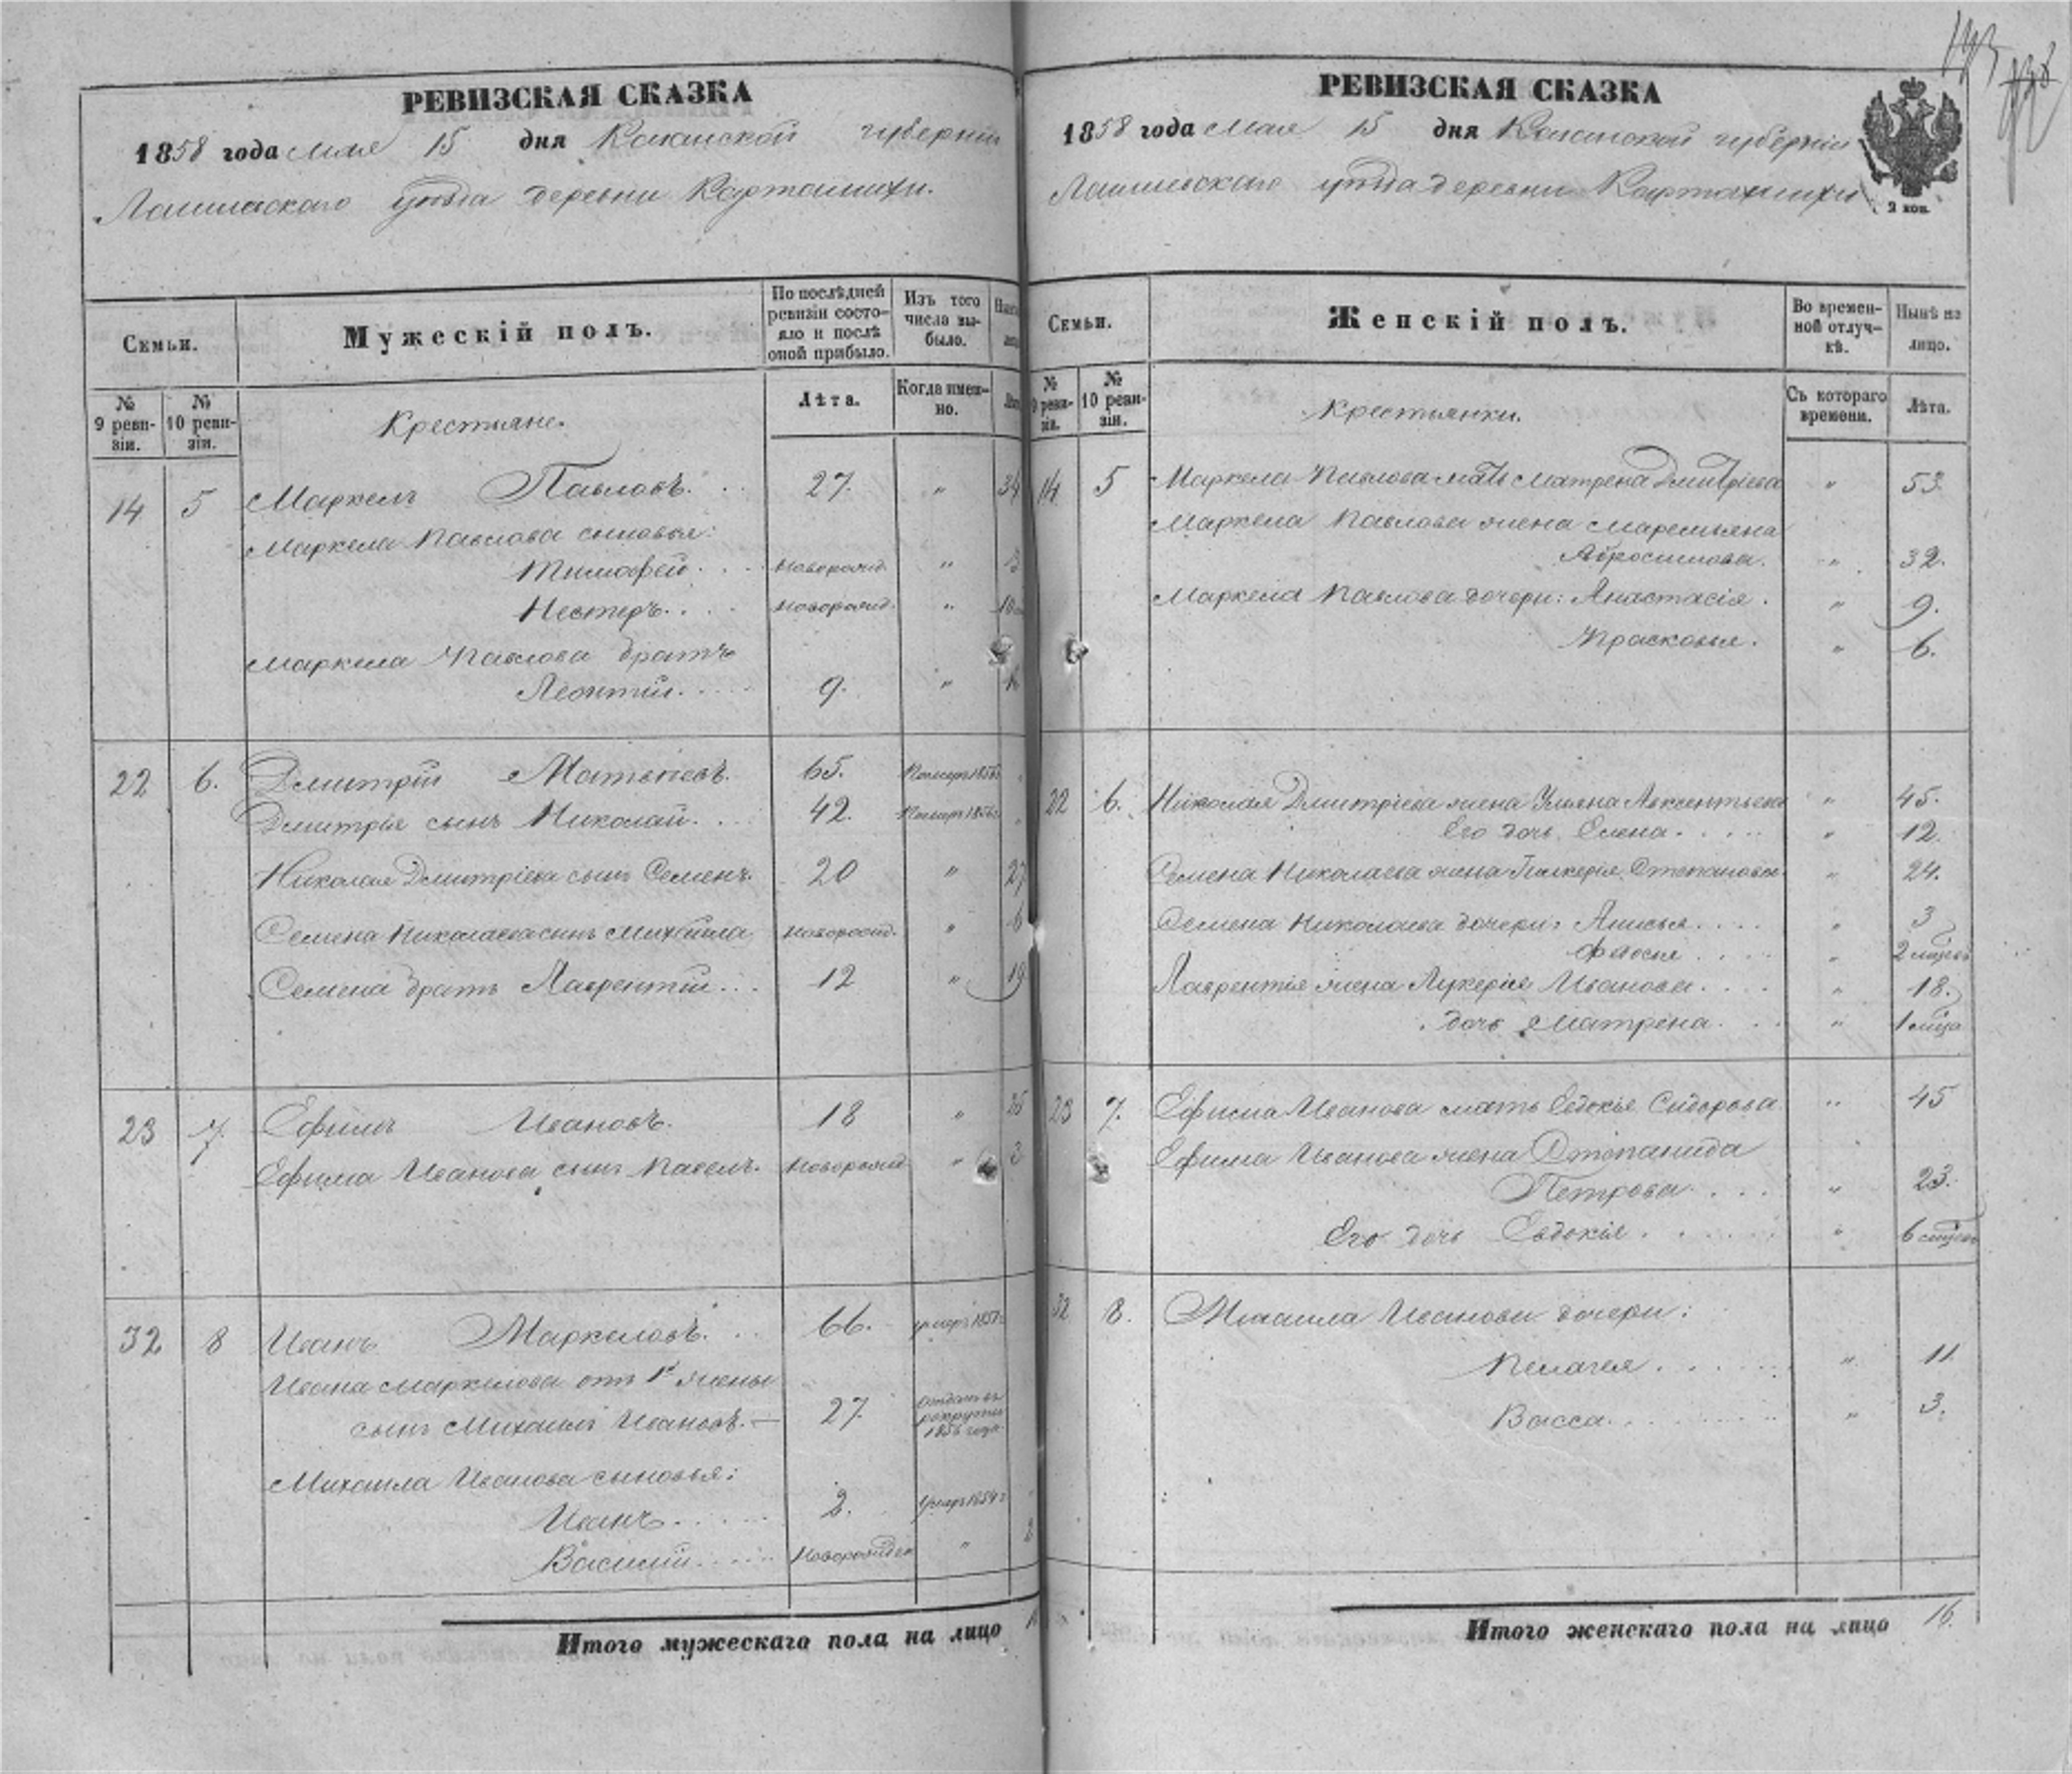 РЕВИЗСКАЯ СКАЗКА
1858 года мая 15 дня Казанской губерніи
Лаишевскаго уѣзда деревни Карташихи.
Семьи.
Мужескій полъ.
По послѣдней ревизіи состо-
яло и послѣ
оной прибыло.
Изъ того
числа вы-
было.
№
9 реви-
зіи.
№
10 реви-
зіи.
Крестьяне.
Лѣта.
Когда имен-
но.
14 5 Маркелъ Павловъ. 27. " 34
Маркела Павлова сыновья:
Тимофей. новорожд. " 3
Нестеръ. новорожд. "
Маркела Павлова братъ
Леонтій. 9. "
22 6. Дмитрій Матвѣевъ. 65.
Дмитрія сынъ Николай. 42.
Николая Дмитріева сынъ Семенъ. 20 " 27
Семена Николаева сынъ Михайла новорожд. " 6
Семена братъ Лаврентій. 12 " 19
23 7. Ефимъ Ивановъ. 18 "
Ефима Иванова сынъ Павелъ. новорожд. " 3
32 8 Иванъ Маркеловъ. 66.
Ивана Маркелова отъ 1й жены
сынъ Михаилъ Ивановъ.— 27 отданъ въ
рекруты
1856 года
Михаила Иванова сыновья:
Иванъ. 2. умеръ 1854 г
Василій. новорожден "
Итого мужескаго пола на лицо
РЕВИЗСКАЯ СКАЗКА
1858 года мая 15 дня Казанской губерніи
Лаишевскаго уѣзда деревни Карташихи
2 коп.
Семьи.
Женскій полъ.
Во времен-
ной отлуч-
кѣ.
Нынѣ на
лицо.
№
9 реви-
зіи.
№
10 реви-
зіи.
Крестьянки.
Съ котораго
времени.
Лѣта.
14 5 Маркела Павлова мать Матрена Дмитріева " 53.
Маркела Павлова жена Маремьяна
Абросимова. " 32.
Маркела Павлова дочери: Анастасія. " 9.
Прасковья. " 6.
22 6. Николая Дмитріева жена Ульяна Авксентьева " 45.
Его дочь Елена. " 12.
Семена Николаева жена Гликерія Степановна " 24.
Семена Николаева дочери: Анисья. " 3
Федосья. "
Лаврентія жена Лукерія Иванова. " 18.
дочь Матрена. "
23 7. Ефима Иванова мать Евдокья Сидорова " 45
Ефима Иванова жена Степанида
Петрова. " 23.
Его дочь Евдокія. "
32 8. Михаила Иванова дочери:
Пелагея. " 11.
Васса. " 3.
Итого женскаго пола на лицо 16.